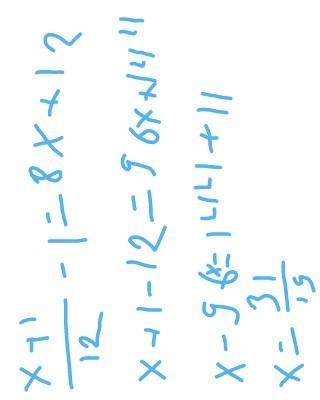 x+1/12 - 1 = 8x+12
x+1-12=96x+144
x-96x=144+11
x=31/19